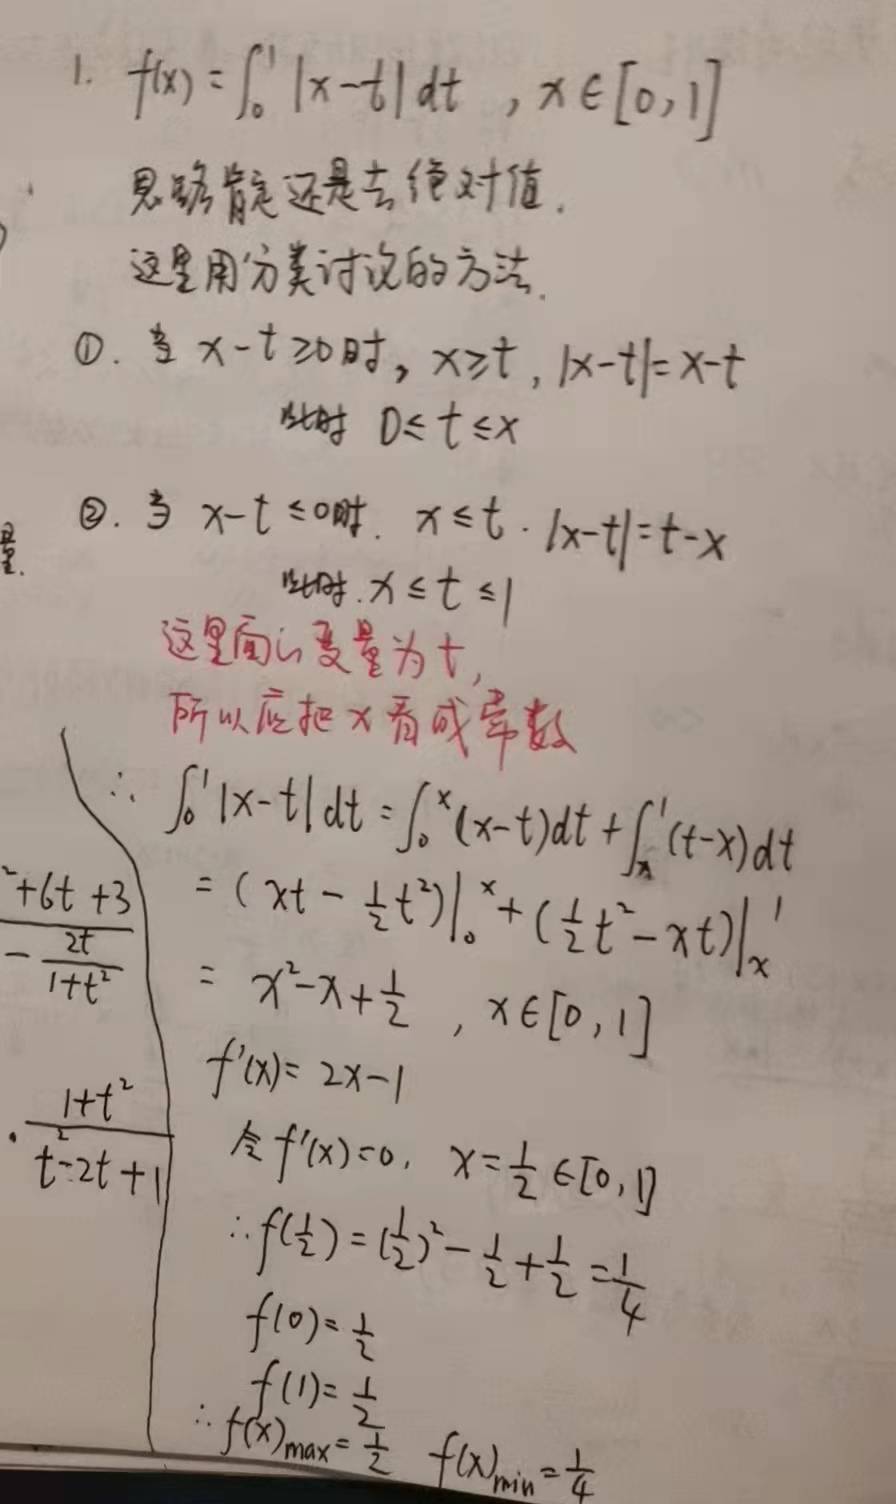 1. f(x) = ∫₀¹ |x-t| dt , x∈[0,1]
思路肯定还是去绝对值.
这里用分类讨论的方法.
①. 当 x-t≥0时, x≥t, |x-t|=x-t
此时 0≤t≤x
②. 当 x-t≤0时. x≤t. |x-t|=t-x
此时. x≤t≤1
量.
这里面的变量为t,
所以应把x看成常数
∴ ∫₀¹|x-t|dt = ∫₀ˣ(x-t)dt + ∫ₓ¹(t-x)dt
= (xt - 1/2 t²)|₀ˣ + (1/2 t² - xt)|ₓ¹
= x²-x+1/2 , x∈[0,1]
f'(x)= 2x-1
令 f'(x)=0, x=1/2∈[0,1]
∴f(1/2) = (1/2)² - 1/2 + 1/2 = 1/4
f(0)=1/2
f(1)=1/2
∴ f(x)max=1/2 f(x)min=1/4
²+6t+3
- 2t/1+t²
· 1+t²/t²-2t+1